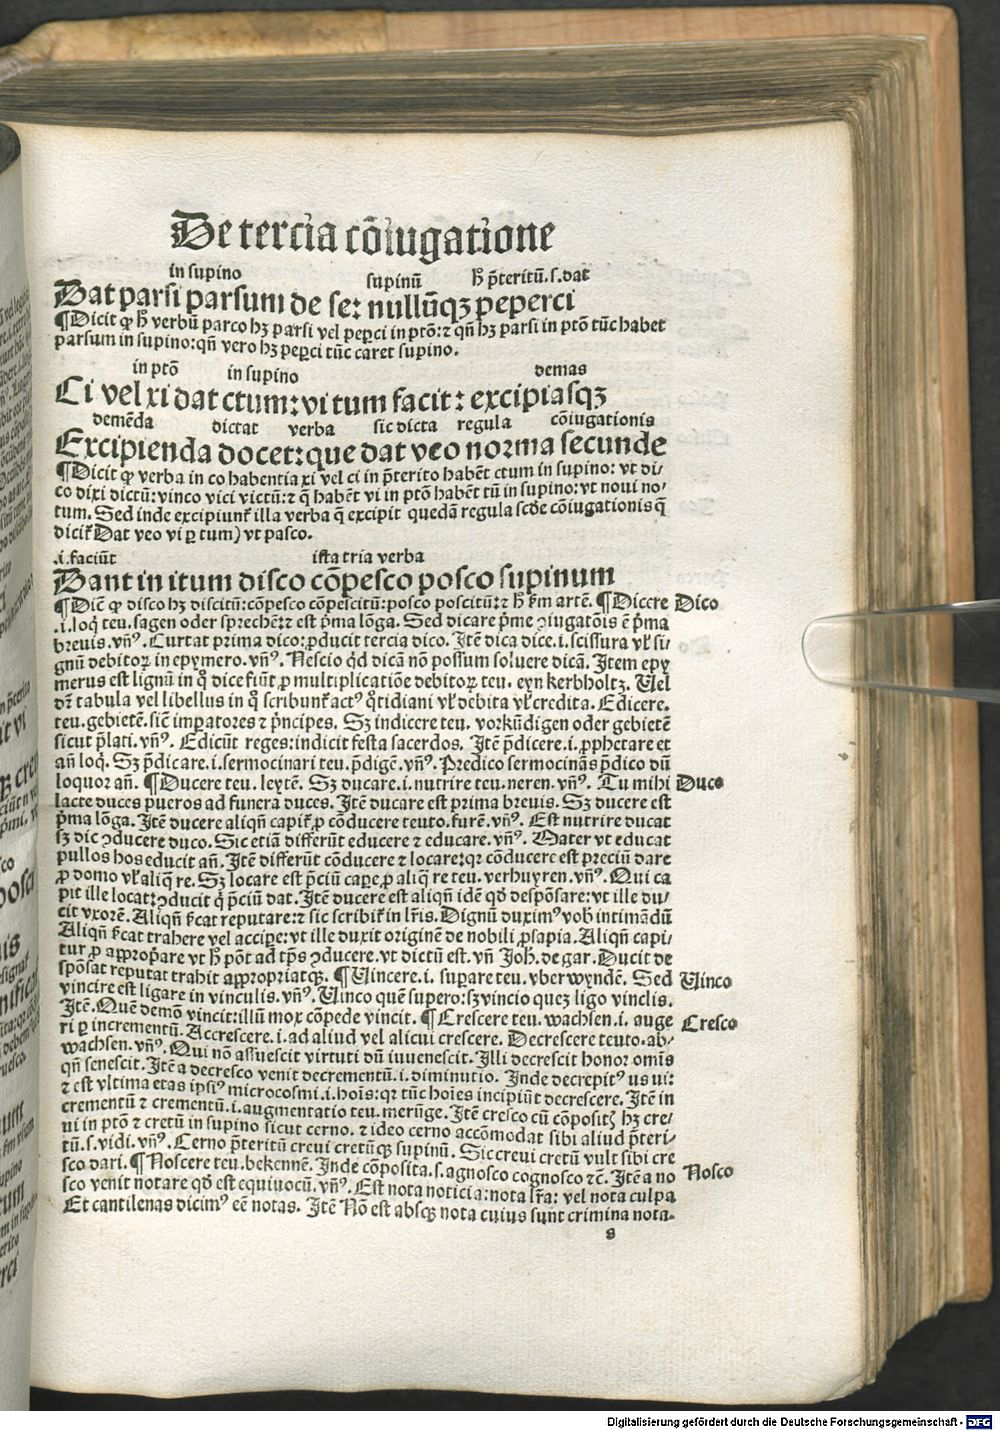 De tercia cōiugatione
in supino supinū ħ p̄teritū.s.dat
Dat parsi parsum de se: nullūqꝫ peperci
¶Dicit ꝙ ħ verbū parco hꝫ parsi vel peꝑci in ptō: ⁊ qn̄ hꝫ parsi in ptō tūc habet
parsum in supino: qn̄ vero hꝫ peꝑci tūc caret supino.
in ptō in supino demas
Ci vel xi dat ctum: vi tum facit: excipiasqꝫ
demēda dictat verba sic dicta regula cōiugationis
Excipienda docet: que dat veo norma secunde
¶Dicit ꝙ verba in co habentia xi vel ci in p̄terito habēt ctum in supino: vt di⸗
co dixi dictū: vinco vici victū: ⁊ q̄ habēt vi in ptō habēt tū in supino: vt noui no⸗
tum. Sed inde excipiunt illa verba q̄ excipit quedā regula scd̄e cōiugationis q̄
dicit Dat veo vi ꝑ tum) vt pasco.
.i. faciūt ista tria verba
Dant in itum disco cōpesco posco supinum
¶Dic̄ ꝙ disco hꝫ discitū: cōpesco cōpescitū: posco poscitū: ⁊ ħ ẜm artē. ¶Dicere Dico
.i. loq̄ teu. sagen oder sprechē: ⁊ est p̄ma lōga. Sed dicare p̄me ꝯiugatōis ē p̄ma
breuis. vn̄ꝰ. Curtat prima dico: ꝓducit tercia dico. Itē dica dice .i. scissura vl̓ si⸗
gnū debitoꝝ in epymero. vn̄ꝰ. Nescio qd̓ dicā nō possum soluere dicā. Item epy
merus est lignū in q̊ dice fiūt ꝓ multiplicatiōe debitoꝝ teu. eyn kerbholtz. Vel
dr̄ tabula vel libellus in q̊ scribunt̉ actꝰ q̊tidiani vl̓ debita vl̓ credita. Edicere.
teu. gebietē. sic̄ imꝑatores ⁊ p̄ncipes. Sꝫ indicere teu. vorkūdigen oder gebietē
sicut p̄lati. vn̄ꝰ. Edicūt reges: indicit festa sacerdos. Itē p̄dicere .i. ꝓphetare et
an̄ loq̄. Sꝫ p̄dicare .i. sermocinari teu. p̄digē. vn̄ꝰ. Predico sermocinās p̄dico dū
loquor an̄. ¶Ducere teu. leytē. Sꝫ ducare .i. nutrire teu. neren. vn̄ꝰ. Tu mihi Duco
lacte duces pueros ad funera duces. Itē ducare est prima breuis. Sꝫ ducere est
p̄ma lōga. Itē ducere aliqn̄ capit̉ ꝓ cōducere teuto. furē. vn̄ꝰ. Est nutrire ducat
sꝫ dic ꝯducere duco. Sic etiā differūt educere ⁊ educare. vn̄ꝰ. Mater vt educat
pullos hos educit an̄. Itē differūt cōducere ⁊ locare: qꝛ cōducere est preciū dare
ꝓ domo vl̓ aliq̄ re. Sꝫ locare est p̄ciū caꝑe ꝓ aliq̄ re teu. verhuyren. vn̄ꝰ. Qui ca
pit ille locat: ꝯducit q̄ p̄ciū dat. Itē ducere est aliqn̄ idē qd̓ despōsare: vt ille du⸗
cit vxorē. Aliqn̄ ẜcat reputare: ⁊ sic scribit̉ in lr̄is. Dignū duximꝰ vob̄ intimādū
Aliqn̄ ẜcat trahere vel acciꝑe: vt ille duxit originē de nobili ꝓsapia. Aliqn̄ capi⸗
tur ꝓ aꝓprare vt ħ pōt ad tp̄s ꝯducere. vt dictū est. vn̄ Joh̄. de gar. Ducit de
spōsat reputat trahit aꝓpriatqꝫ. ¶Vincere .i. suꝑare teu. vberwyndē. Sed Vinco
vincire est ligare in vinculis. vn̄ꝰ. Vinco quē supero: sꝫ vincio quez ligo vinclis.
Itē. Quē demō vincit: illū mox cōpede vincit. ¶Crescere teu. wachsen .i. auge Cresco
ri ꝑ incrementū. Accrescere .i. ad aliud vel alicui crescere. Decrescere teuto. ab⸗
wachsen. vn̄ꝰ. Qui nō assuescit virtuti dū iuuenescit. Illi decrescit honor omīs
qn̄ senescit. Itē a decresco venit decrementū .i. diminutio. Inde decrepitꝰ us ui:
⁊ est vltima etas ipsiꝰ microcosmi .i. hoīs: qꝛ tūc hoīes incipiūt decrescere. Itē in
crementū ⁊ crementū .i. augmentatio teu. merūge. Itē cresco cū cōpositꝭ hꝫ cre⸗
ui in ptō ⁊ cretū in supino sicut cerno. ⁊ ideo cerno accōmodat sibi aliud p̄teri⸗
tū .s. vidi. vn̄ꝰ. Cerno p̄teritū creui cretūqꝫ supinū. Sic creui cretū vult sibi cre
sco dari. ¶Noscere teu. bekennē. Inde cōposita .s. agnosco cognosco ⁊c̄. Itē a no Nosco
sco venit notare qd̓ est equiuocū. vn̄ꝰ. Est nota noticia: nota lr̄a: vel nota culpa
Et cantilenas dicimꝰ eē notas. Itē Nō est absqꝫ nota cuius sunt crimina nota.
g
Digitalisierung gefördert durch die Deutsche Forschungsgemeinschaft - DFG